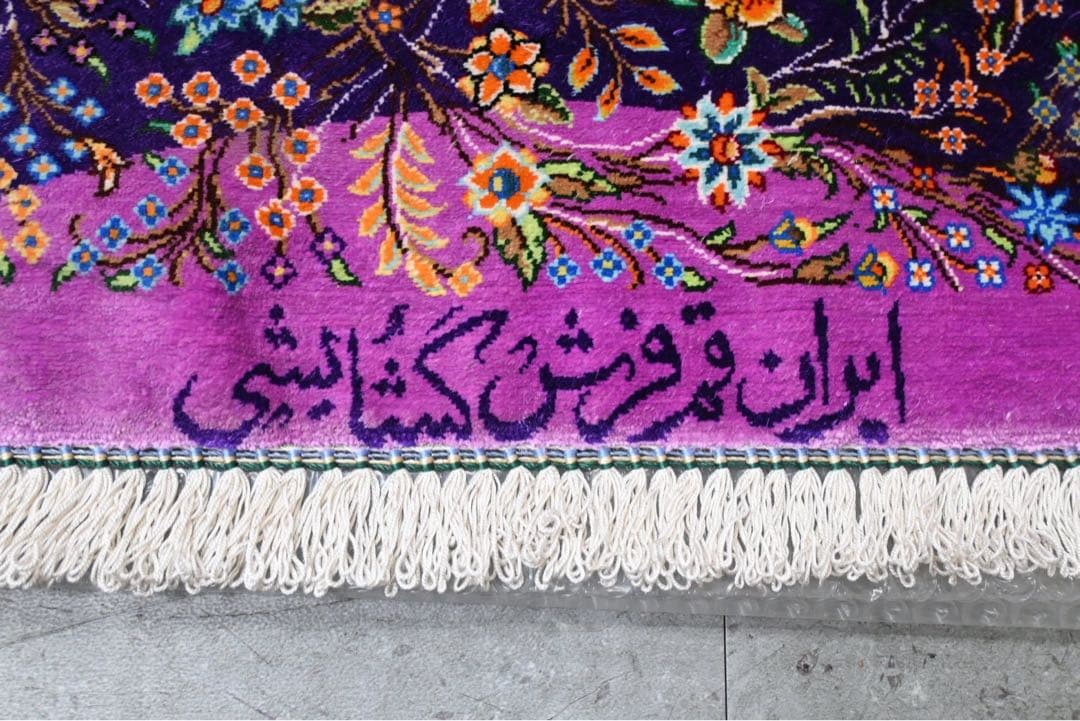 ایران قم فرش گشایشی